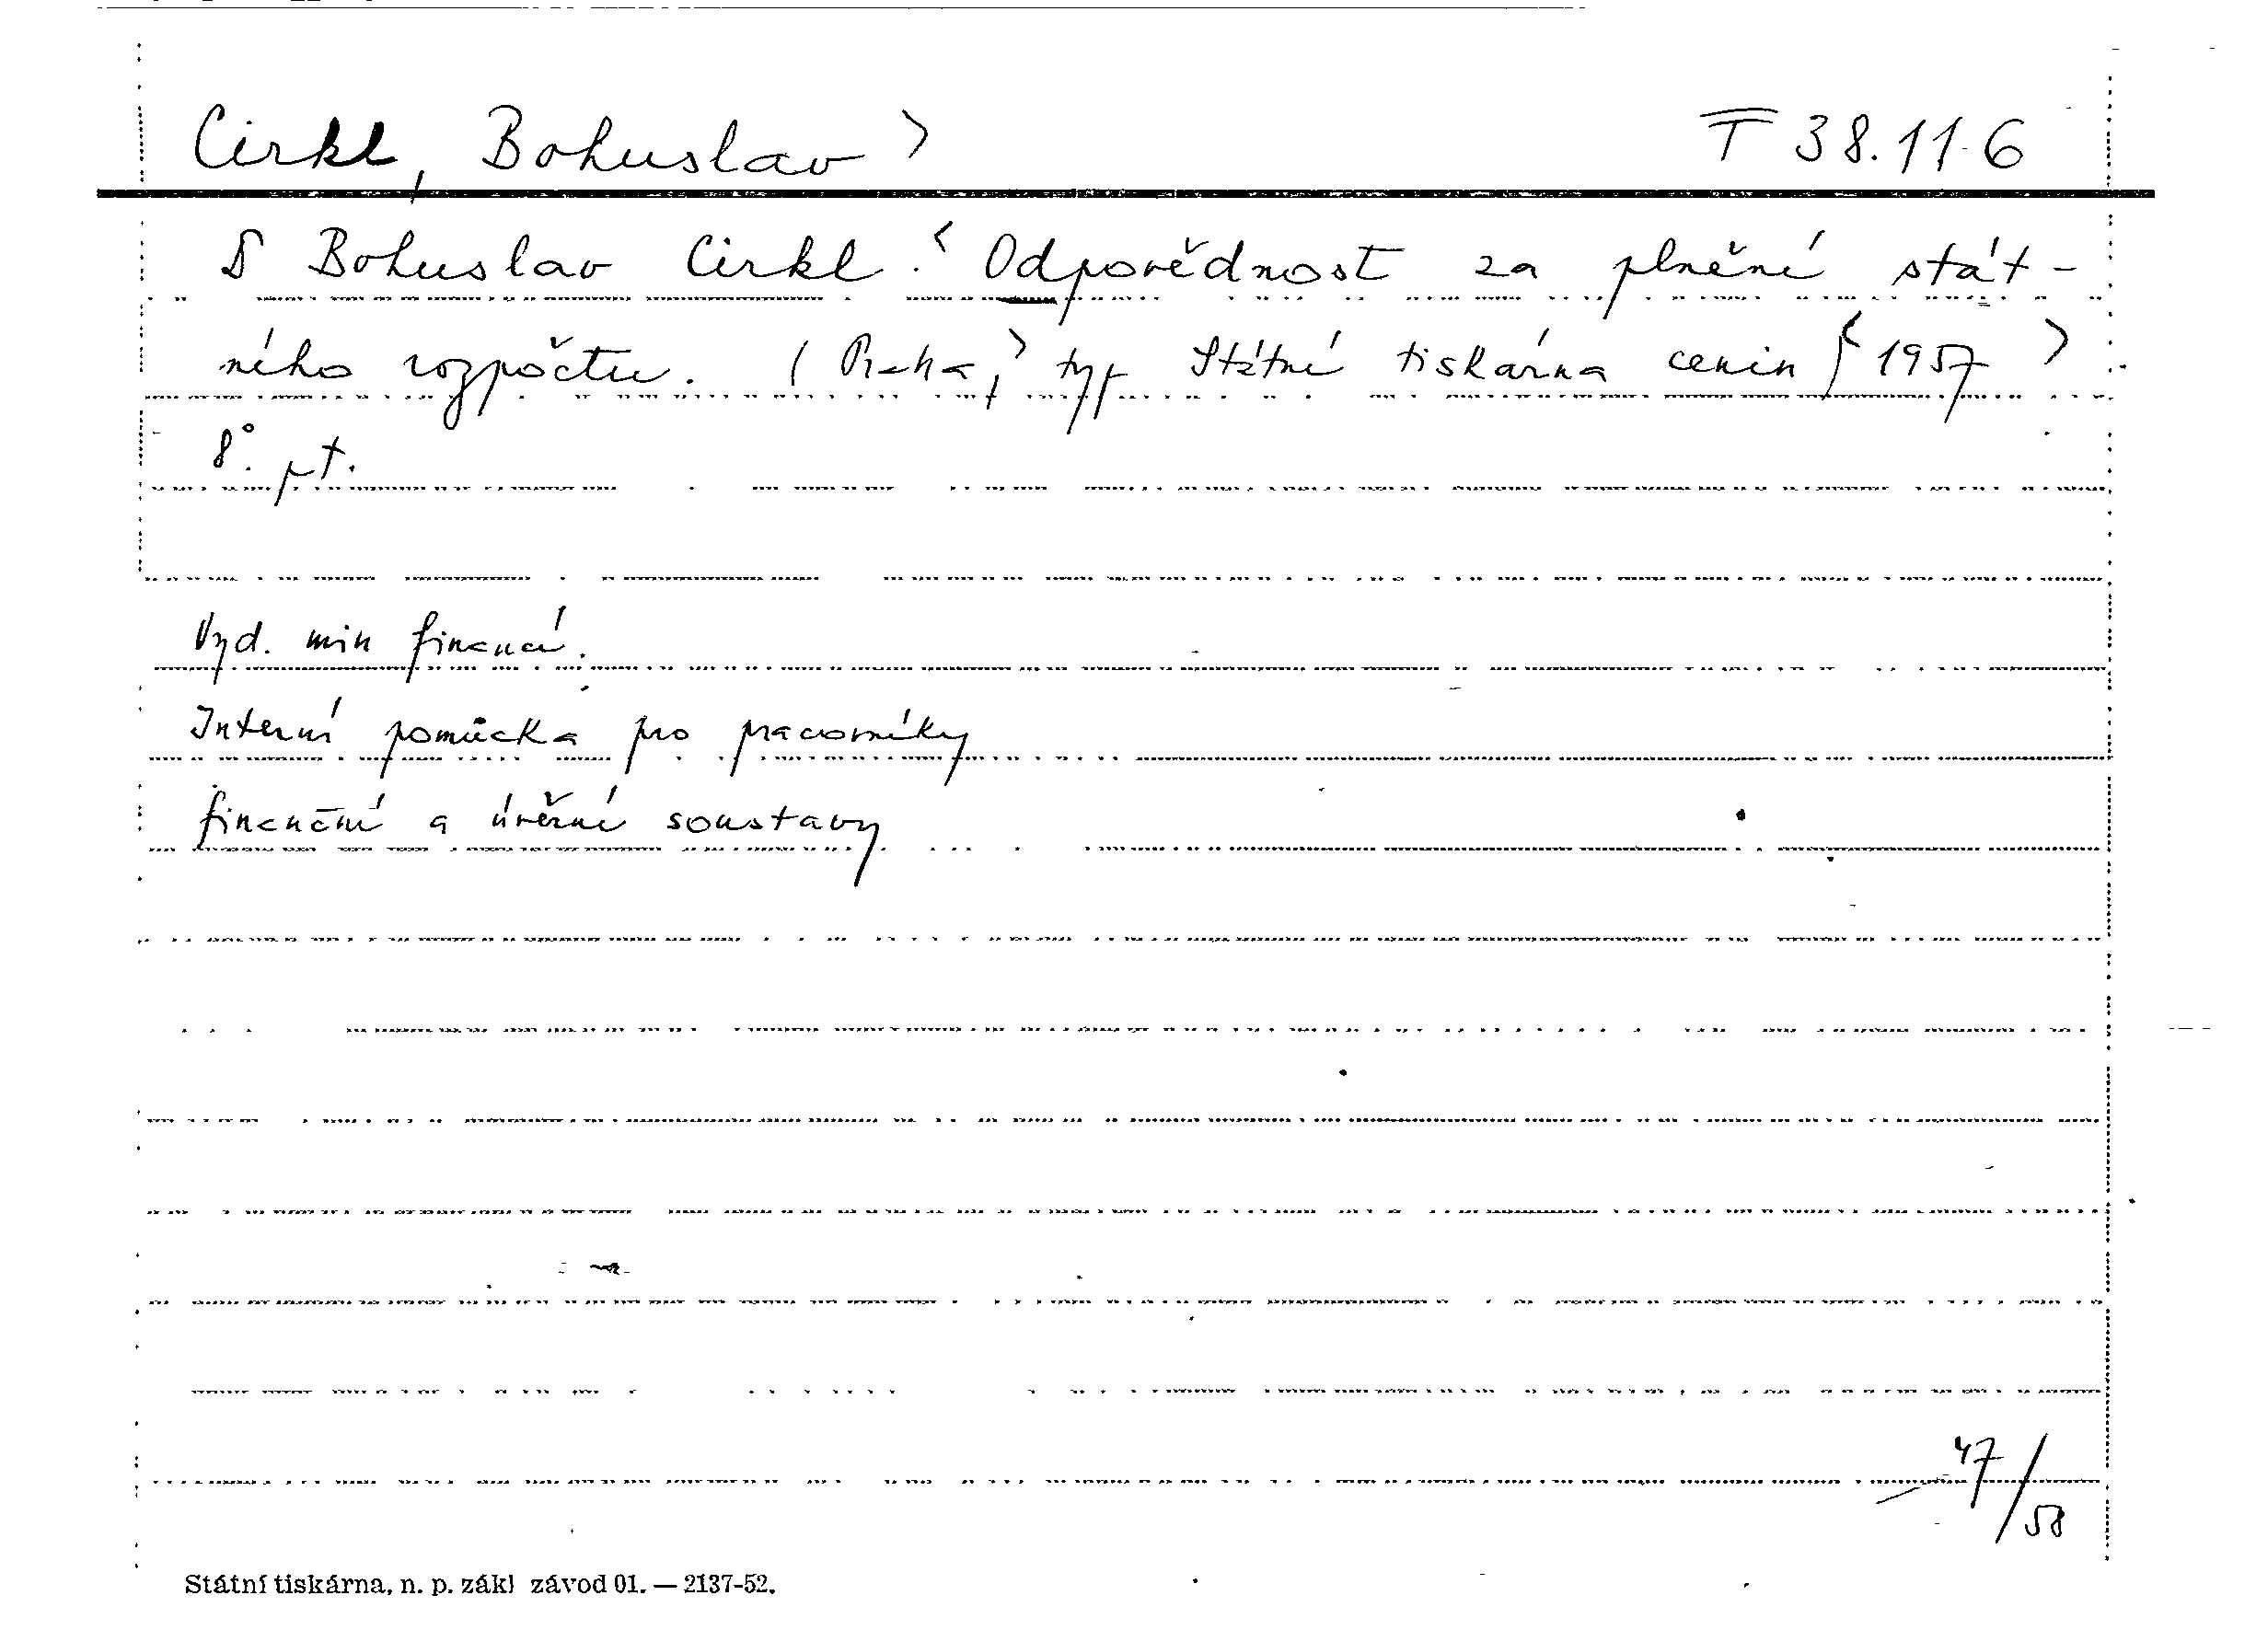 Cirkl, Bohuslav > T 38.116
Bohuslav Cirkl: < Odpovědnost za plnění stát-
ního rozpočtu. (Praha,> typ Státní tiskárna cenin) <1957 >
8°. pt.
Vyd. min financí.
Interní pomůcka pro pracovníky
finanční a úvěrní soustavy
47/58
Státní tiskárna, n. p. zákl závod 01. — 2137-52.